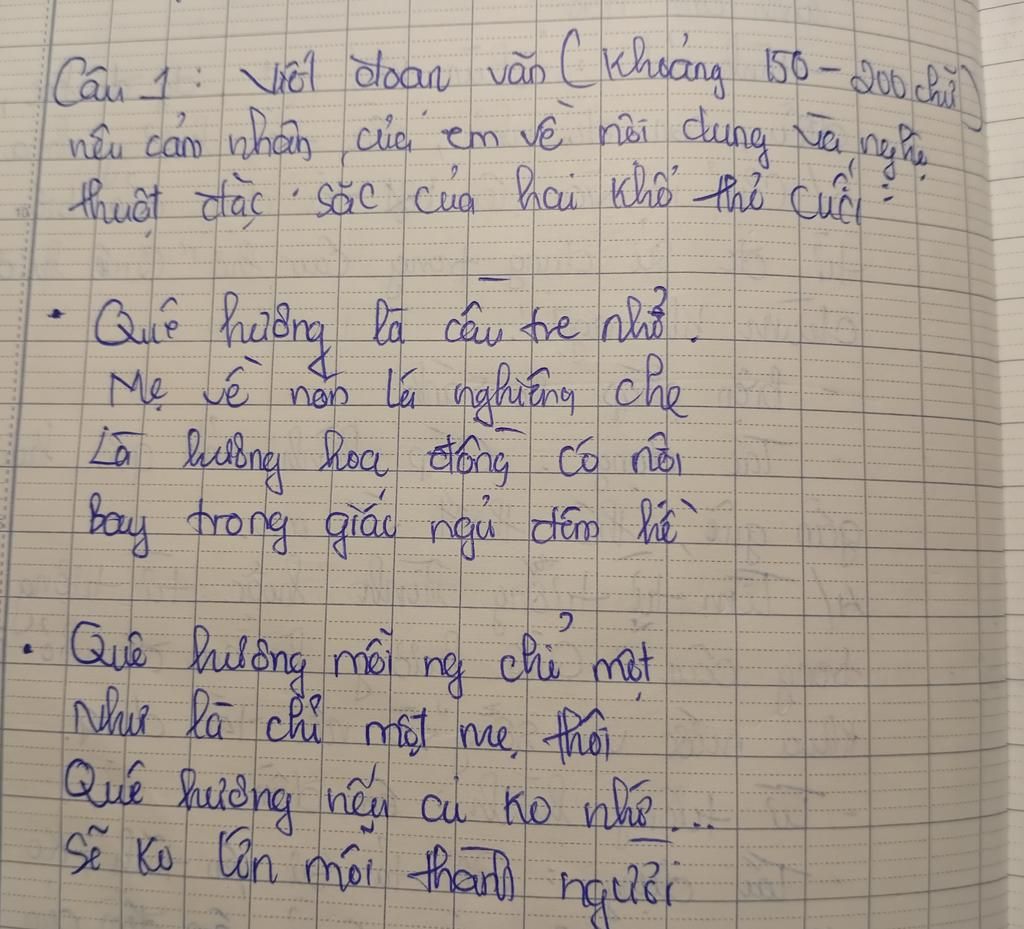 Câu 1: Viết đoạn văn (Khoảng 150 - 200 chữ)
nêu cảm nhận của em về nội dung và nghệ
thuật đặc sắc của hai khổ thơ cuối:
• Quê hương là cầu tre nhỏ.
Mẹ về nón lá nghiêng che
Là hương hoa đồng cỏ nội
Bay trong giấc ngủ đêm hè
• Quê hương mỗi ng chỉ một
Như là chỉ một mẹ thôi
Quê hương nếu ai ko nhớ...
Sẽ ko lớn nổi thành người